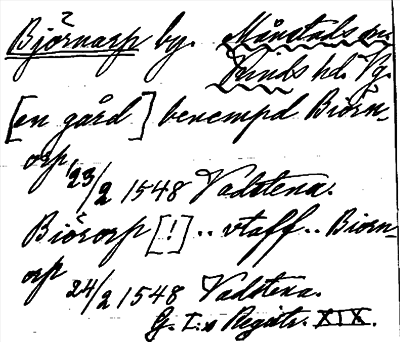 Björnarp by. Månstads sn.
Kinds hd. Vg.
[en gård] benempd Biörn-
orp, 23/2 1548 Vadstena.
Biörorp [!] .. vtaff .. Biorn-
orp 24/2 1548 Vadstena.
G. I:s Registr. XIX.